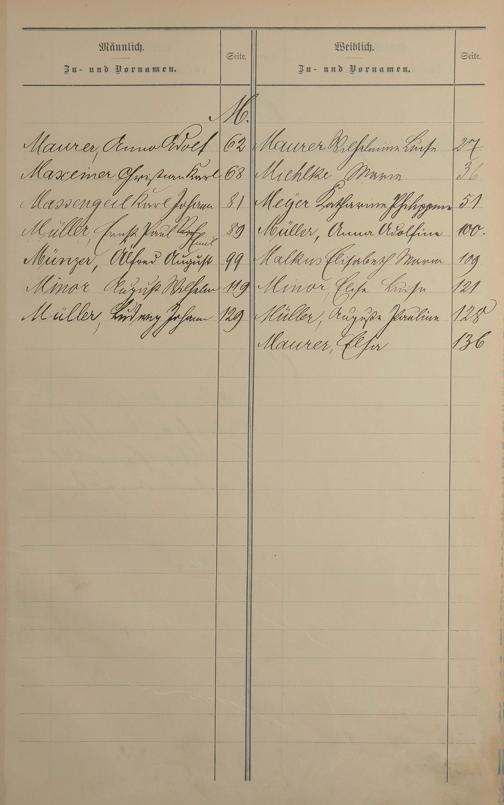 Männlich.
Zu- und Vornamen.
Seite.
Weiblich.
Zu- und Vornamen.
Seite.
M.
Maurer, Anno Adolf 62
Maxeiner Christian Karl 68
Massengeil Karl Johann 81
Müller, Ernst Paul Emil 89
Münzer, Alfred August 99
Minor August Wilhelm 119
Müller, Ludwig Johann 129
Maurer Wilhelmine Luise 27
Miehlke Maria
Meyer Katharine Philippine 51
Müller, Anna Adolfine 100.
Malkus Elisabeth Maria 109
Minor, Else Luise 121
Müller, Auguste Pauline 128
Maurer, Elsa 136